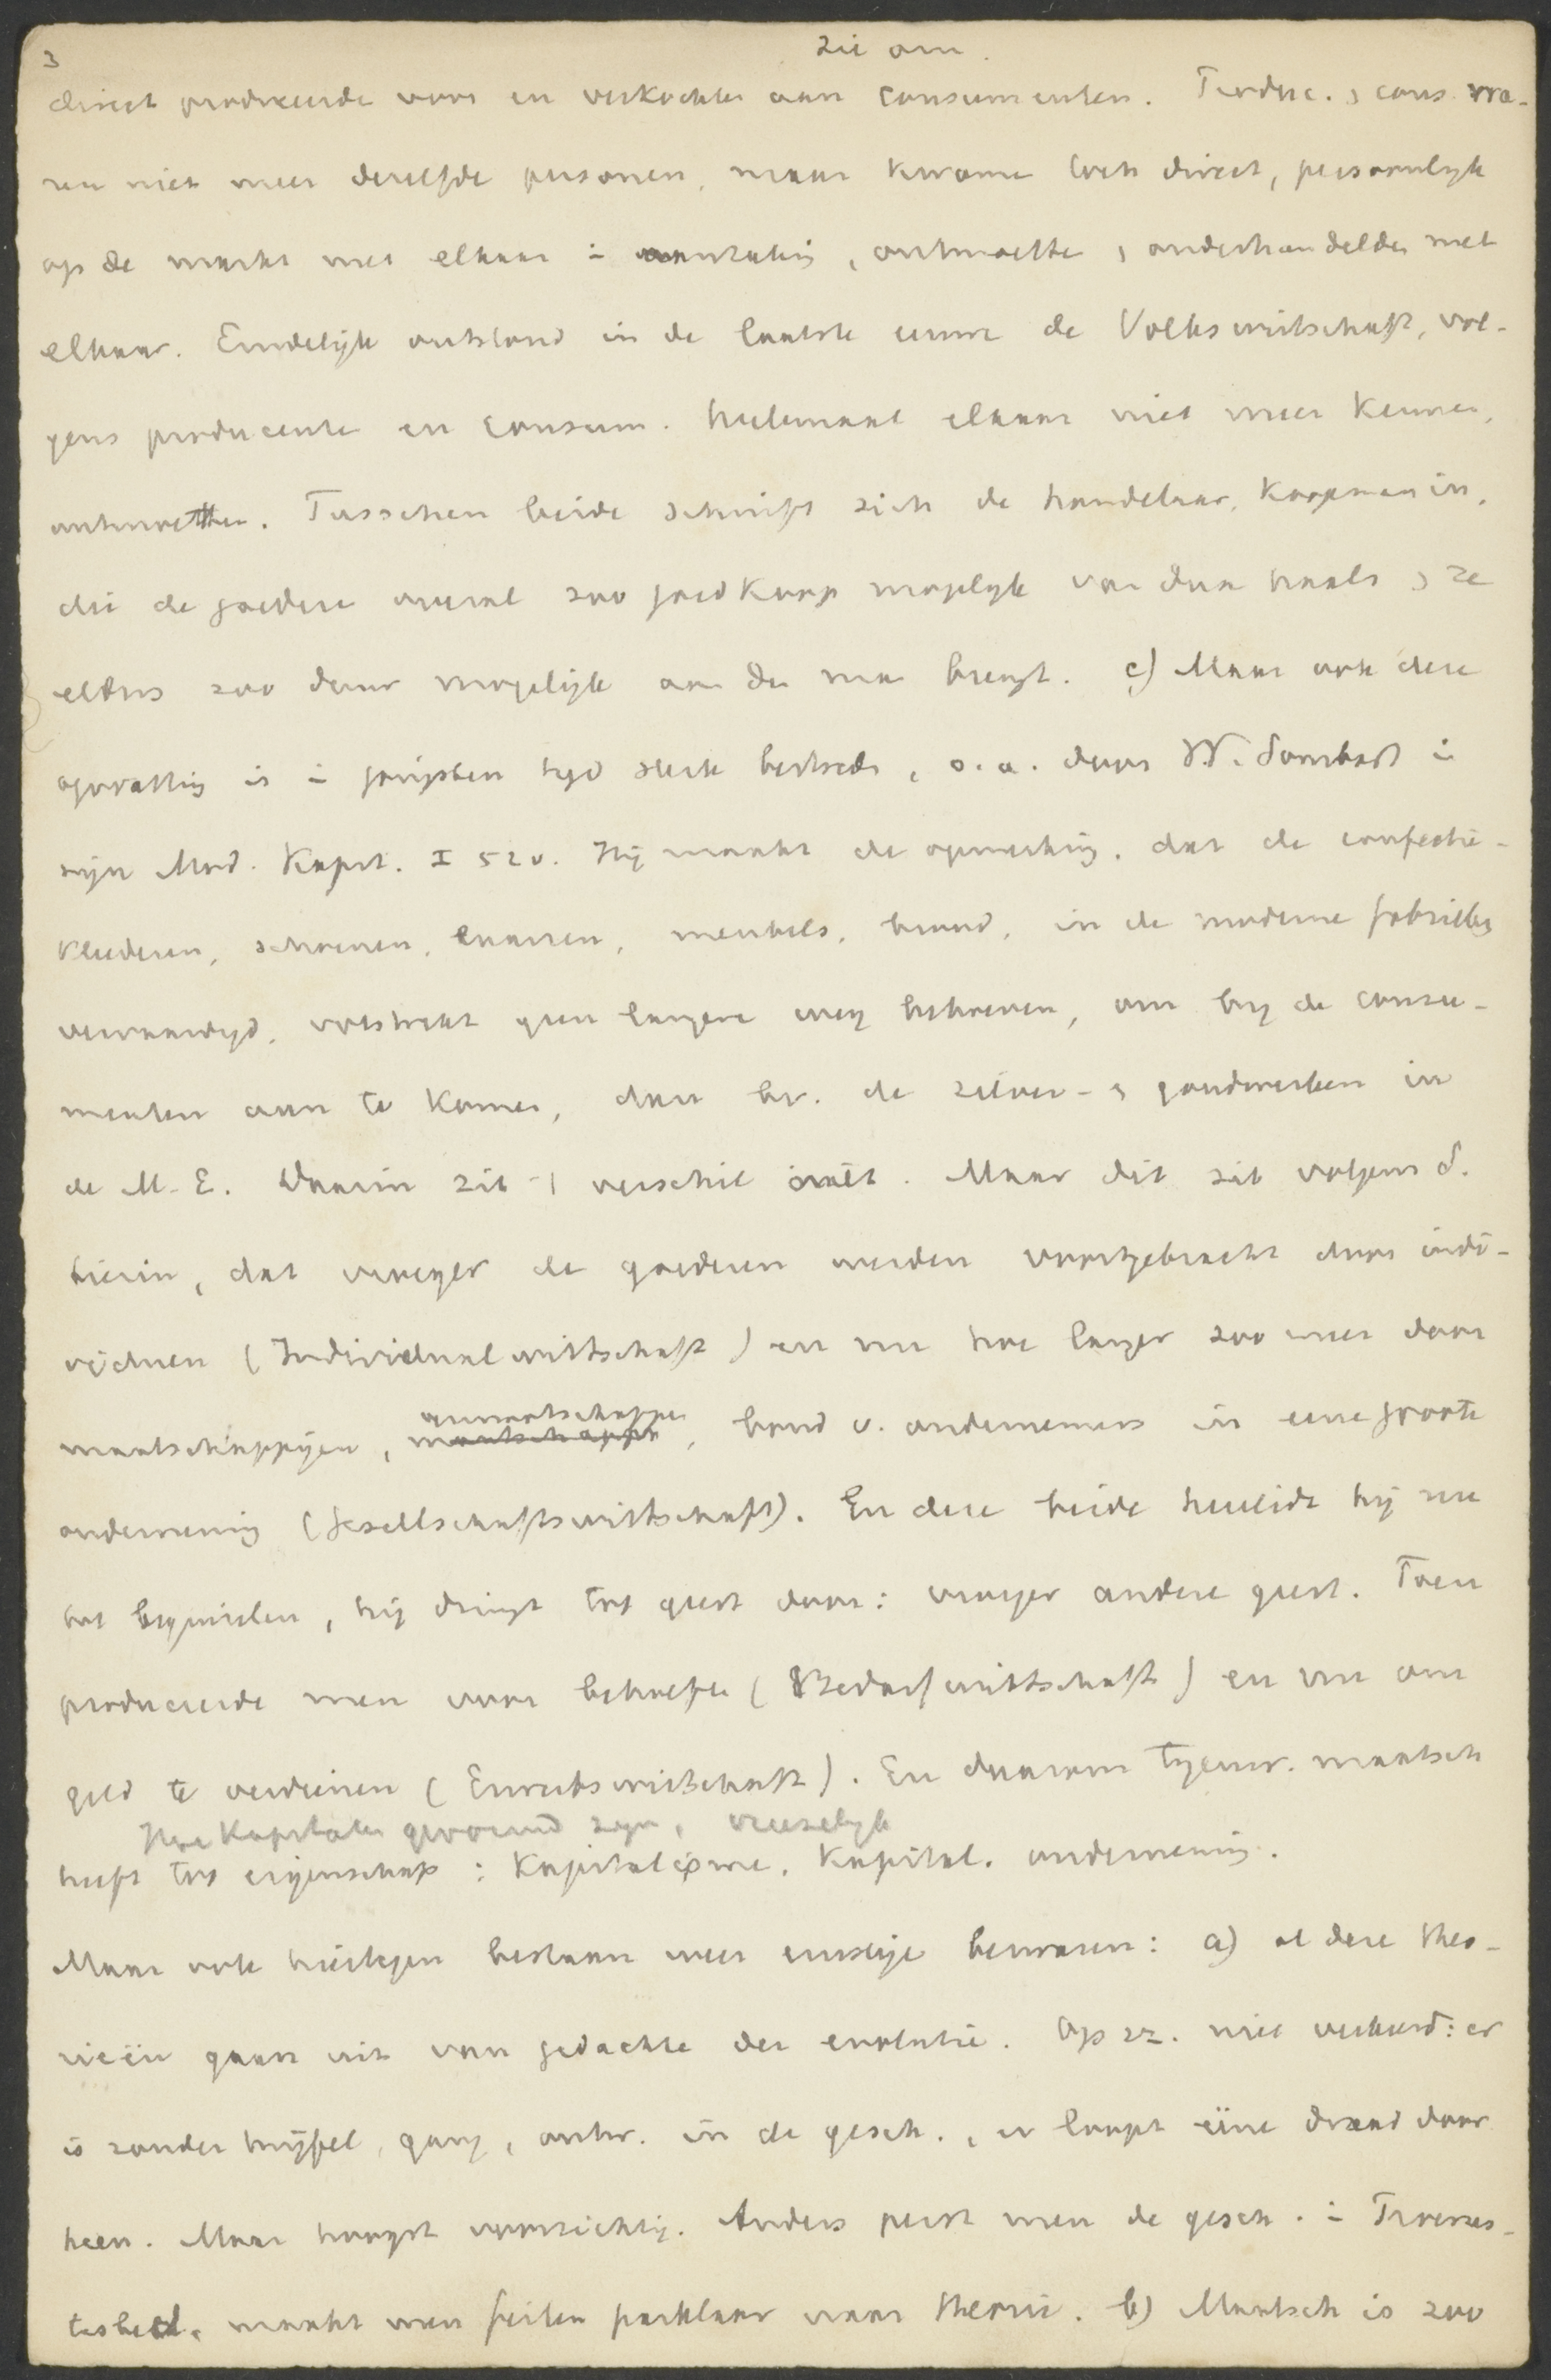 3
Zie om.
direct produceerde voor en verkochten aan consumenten. Produc. , cons. wa-
ren niet meer dezelfde personen, maar kwame toch direct, persoonlyk
op de markt met elkaar i aanraking, ontmoette , onderhandelden met
elkaar. Eindelijk ontstond in de laatste eeuw de Volkswirtschaft, vol-
gens producente en consum. helemaal elkaar niet meer kennen,
ontmoetten. Tusschen beide schuift zich de handelaar, koopman in,
die de goedere overal zoo goedkoop mogelyk van daan haalt , ze
elders zoo duur mogelijk aan de man brengt. c) Maar ook deze
opvatting is i jongsten tyd sterk bestreden, o.a. door W. Sombart i
zijn Mod. Kapit. I 52v. Hij maakt de opmerking, dat de confectie-
kleederen, schoenen, laarzen, meubels, brood, in de moderne fabrieken
vervaardigd, volstrekt geen langere weg behoeven, om by de consu-
menten aan te komen, dan bv. de zilver- , goudwerken in
de M.E. Daarin zit 't verschil niet. Maar dit zit volgens S.
hierin, dat vroeger de goederen werden voortgebracht door indi-
viduen (Individualwirtschaft) en nu hoe langer zoo meer door
maatschappijen, genootschappen, bond v. ondernemers in eene groote
onderneming (Gesellschaftswirtschaft). En deze beide herleidt hij nu
tot beginselen, hij dringt tot geest door: vroeger andere geest. Toen
produceerde men voor behoefte (Bedarfwirtschaft) en nu om
geld te verdienen (Erwerbswirtschaft). En daarom tegenw. maatsch
Hoe kapitalen gevormd zyn, vreeselyk
heeft tot eigenschap: Kapitalisme, Kapital. onderneming.
Maar ook hiertegen bestaan weer ernstige bezwaren: a) al deze theo-
rieën gaan uit van gedachte der evolutie. Op zz. niet verkeerd: er
is zonder twijfel, gang, ontw. in de gesch., er loopt ééne draad door
heen. Maar hoogst voorzichtig. Anders perst men de gesch. i Procrus-
tesbed, maakt men feiten pasklaar voor theorie. b) Maatsch is zoo